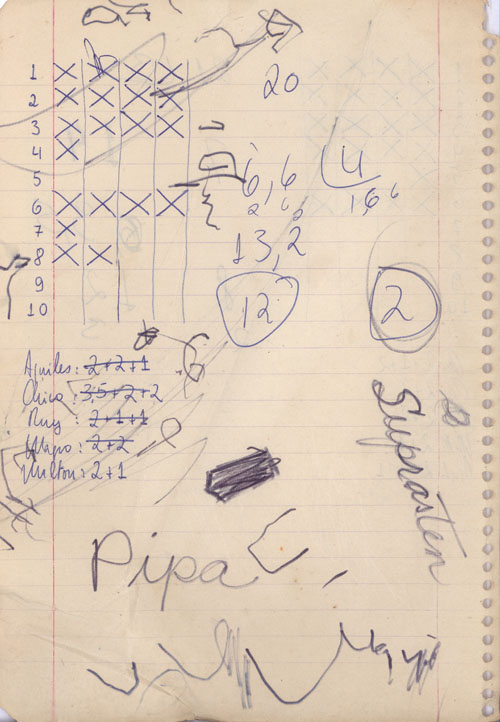 1 X X X X
20
2 X X X X
3 X X X X
4 X
5
6,6 4
6 X X X X
2 1,6
7 X
13,2
8 X X
9
10
12
2
Aquiles: 2+2+1
Chico: 3,5+2+2
Ruy: 2+1+1
2+2
Milton: 2+1
Suprasten
Pipa